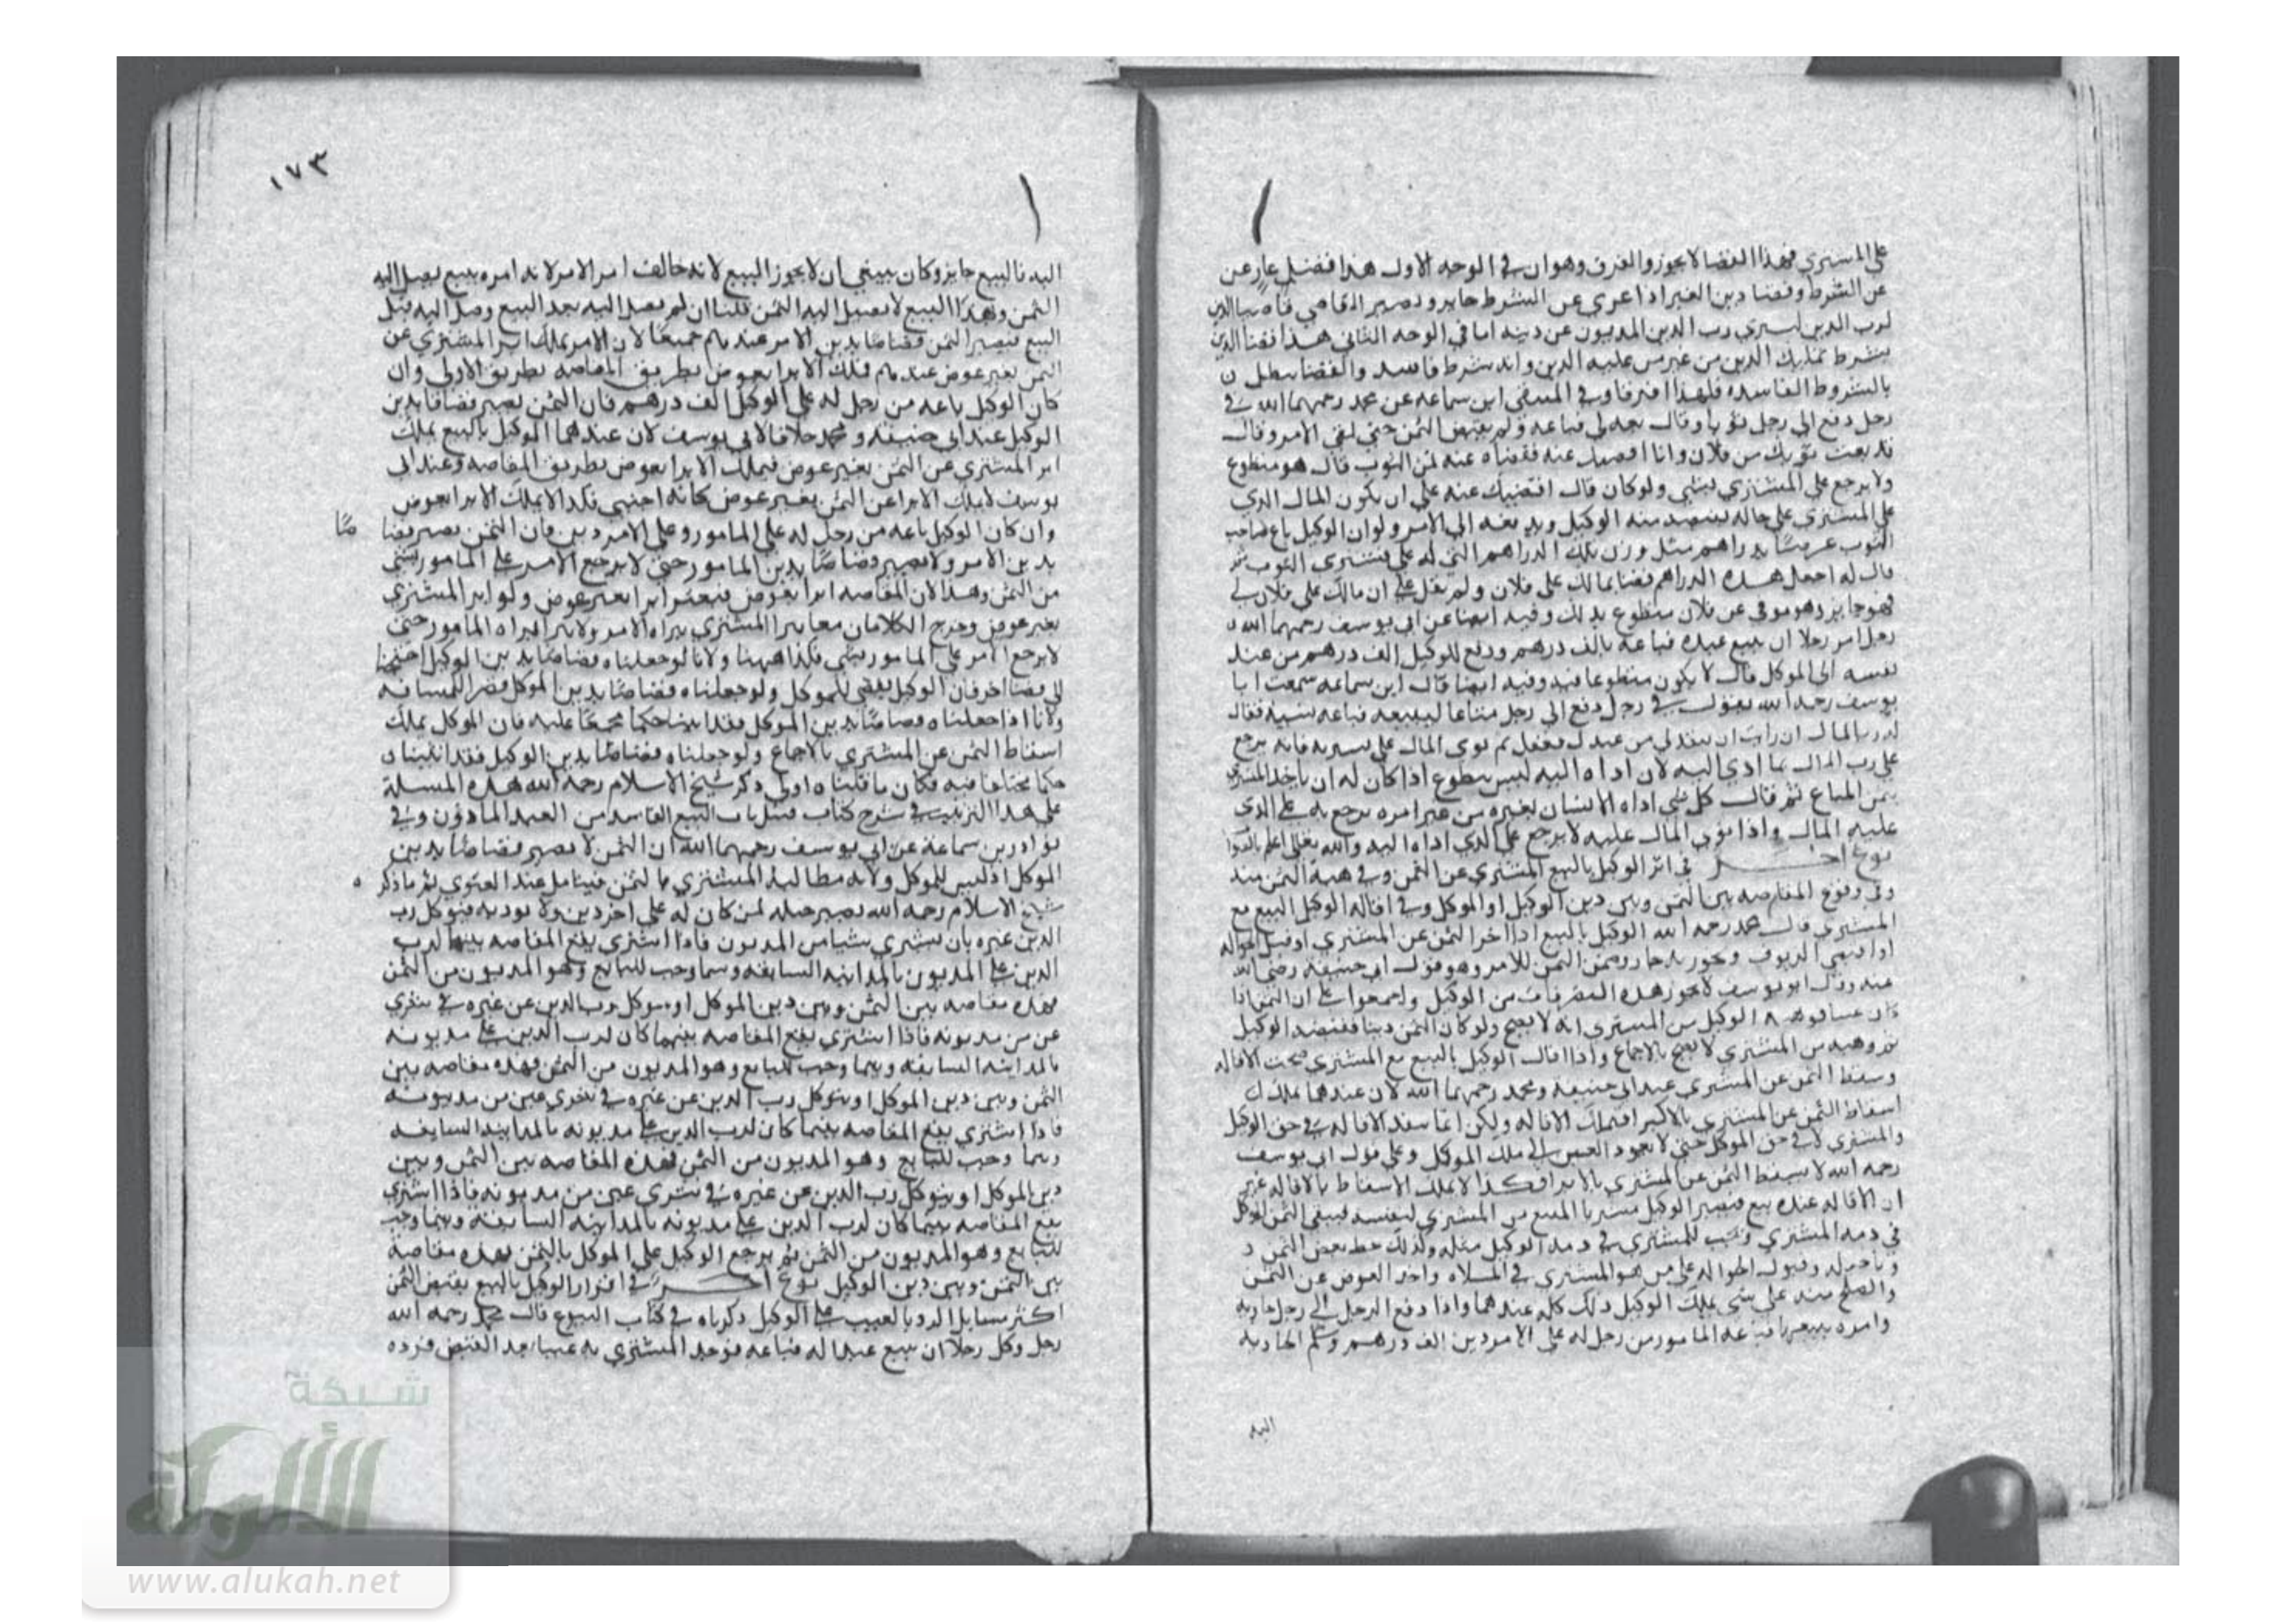 على المشتري فهذا القضا لا يجوز والفرق وهو ان في الوجه الاول هذا فضل عار عن
عن الشرط وقضا دين الغير اذا عري عن الشرط جايز ويصير القاضي قاضيا الدين
لرب الدين ليبري رب الدين المديون عن دينه اما في الوجه الثاني هذا قضا الدين
بشرط تمليك الدين من غير من عليه الدين وانه شرط فاسد والقضا يبطل
بالشروط الفاسده فلهذا افترقا وفي المنتقى ابن سماعه عن محمد رحمهما الله في
رجل دفع الى رجل ثوبا وقال بعه لي فباعه ولم يقبض الثمن حتى لقي الامر وقال
قد بعت ثوبك من فلان وانا اقضيك عنه فقضاه عنه ثمن الثوب قال هو متطوع
ولا يرجع على المشتري بشي ولو كان قال اقضيك عنه على ان يكون المال الذي
على المشتري على حاله يقبضه الوكيل ويدفعه الى الامر ولو ان الوكيل باع صاحب
الثوب عرضا بدراهم مثل وزن تلك الدراهم التي له على مشتري الثوب ثم
قال له اجعل هذه الدراهم قضا بمالك على فلان ولم يقل على ان مالك على فلان لي
فهو جايز وهو موفي عن فلان متطوع بذلك وفيه ايضا عن ابي يوسف رحمهما الله
رجل امر رجلا ان يبيع عبده فباعه بالف درهم ودفع الوكيل الف درهم من عند
نفسه الى الموكل قال لا يكون متطوعا فيه وفيه ايضا قال ابن سماعه سمعت ابا
يوسف رحمه الله يقول في رجل دفع الى رجل متاعا ليبيعه فباعه نسية فقال
له رب المال ان رايت ان تنقد لي من عندك ففعل ثم توى المال على مشتريه فانه يرجع
على رب المال بما ادى اليه لان اداه اليه ليس بتطوع اذا كان له ان ياخذ المشتري
بثمن المتاع ثم قال كل شي اداه الانسان لغيره من غير امره يرجع به على الذي
عليه المال واذا توي المال عليه لا يرجع على الذي اداه اليه والله تعالى اعلم بالصواب
نوع اخر في ابرا الوكيل بالبيع المشتري عن الثمن وفي هبة الثمن منه
وفي وقوع المقاصه بين الثمن وبين دين الوكيل او الموكل وفي اقالة الوكيل البيع مع
المشتري قال محمد رحمه الله الوكيل بالبيع اذا اخر الثمن عن المشتري او قبل الحواله
او اقتضى الزيوف وتجوز به جاز وضمن الثمن للامر وهو قول ابي حنيفه رضي الله
عنه وقال ابو يوسف لا تجوز هذه التصرفات من الوكيل واجمعوا على ان الثمن اذا
كان عينا فوهبه الوكيل من المشتري انه لا يصح ولو كان الثمن دينا فقبضه الوكيل
ثم وهبه من المشتري لا يصح بالاجماع واذا اقال الوكيل بالبيع مع المشتري صحت الاقاله
وسقط الثمن عن المشتري عند ابي حنيفه ومحمد رحمهما الله لان عندهما يملك
اسقاط الثمن عن المشتري بالابرا فيملك الاقاله ولكن انما تنفذ الاقاله في حق الوكيل
والمشتري لا في حق الموكل حتى لا يعود العبد الى ملك الموكل وعلى قول ابي يوسف
رحمه الله لا يسقط الثمن عن المشتري بالابرا فكذا لا يملك الاسقاط بالاقاله غير
ان الاقاله عنده بيع فيصير الوكيل مشتريا المبيع من المشتري لنفسه فيبقى الثمن للموكل
في ذمه المشتري ويجب للمشتري في ذمه الوكيل مثله وكذلك حط بعض الثمن
وتاخيره وقبول الحواله على من هو المشتري في الملاه واخذ العوض عن الثمن
والصلح منه على شي يملك الوكيل ذلك كله عندهما واذا دفع الرجل الى رجل جاريه
وامره ببيعها فباعه المامور من رجل له على الامر دين الف درهم وسلم الجاريه
اليه
١٧٣
اليه فالبيع جايز وكان ينبغي ان لا يجوز البيع لانه خالف امر الامر لانه امره ببيع يصل اليه
الثمن وهذا البيع لا يصل اليه الثمن قلنا ان لم يصل اليه بعد البيع وصل اليه قبل
البيع فيصير الثمن قصاصا بدين الامر عندهم جميعا لان الامر يملك ابرا المشتري عن
الثمن بغير عوض عندهم فملك الابرا بعوض بطريق المقاصه بطريق الاولى وان
كان الوكيل باعه من رجل له على الوكيل الف درهم فان الثمن يصير قصاصا بدين
الوكيل عند ابي حنيفه ومحمد خلافا لابي يوسف لان عندهما الوكيل بالبيع يملك
ابرا المشتري عن الثمن بغير عوض فيملك الابرا بعوض بطريق المقاصه وعند ابي
يوسف لا يملك الابرا عن الثمن بغير عوض كانه اجنبي فكذا لا يملك الابرا بعوض
وان كان الوكيل باعه من رجل له على المامور وعلى الامر دين فان الثمن يصير قصا صا
بدين الامر ولا يصير قصاصا بدين المامور حتى لا يرجع الامر على المامور بشي
من الثمن وهذا لان المقاصه ابرا بعوض فيعتبر ابرا بغير عوض ولو ابرا المشتري
بغير عوض وخرج الكلامان معا يبرا المشتري ببراه الامر ولا يبرا ببراه المامور حتى
لا يرجع الامر على المامور بشي فكذا ههنا ولانا لو جعلناه قصاصا بدين الوكيل احتجنا
الى قضا اخر فان الوكيل يقضي للموكل ولو جعلناه قصاصا بدين الموكل قصر المسافه
ولانا اذا جعلناه قصاصا بدين الموكل فقد اثبتنا حكما مجمعا عليه فان الموكل يملك
اسقاط الثمن عن المشتري بالاجماع ولو جعلناه قصاصا بدين الوكيل فقد اثبتنا
حكما مختلفا فيه فكان ما قلناه اولى ذكر شيخ الاسلام رحمه الله هذه المسلة
على هذا الترتيب في شرح كتاب قبل باب البيع الفاسد من العبد الماذون وفي
نوادر بن سماعة عن ابي يوسف رحمهما الله ان الثمن لا يصير قصاصا بدين
الموكل اذ ليس للموكل ولاية مطالبة المشتري بالثمن فيتامل عند الفتوى ثم ما ذكر
شيخ الاسلام رحمه الله يصير حيله لمن كان له على اخر دين ولا يوديه فيوكل رب
الدين غيره بان يشتري شيا من المديون فاذا اشترى يقع المقاصه بينهما لرب
الدين على المديون بالمداينه السابقه وبما وجب للبايع وهو المديون من الثمن
فهذه مقاصه بين الثمن وبين دين الموكل او يتوكل رب الدين عن غيره في شري
عين من مديونه فاذا اشترى يقع المقاصه بينهما كان لرب الدين على مديونه
بالمداينه السابقه وبما وجب للبايع وهو المديون من الثمن فهذه مقاصه بين
الثمن وبين دين الموكل او يتوكل رب الدين عن غيره في شري عين من مديونه
فاذا اشترى يقع المقاصه بينما كان لرب الدين على مديونه بالمداينه السابقه
وبما وجب للبايع وهو المديون من الثمن فهذه المقاصه بين الثمن وبين
دين الموكل او يتوكل رب الدين عن غيره في شرى عين من مديونه فاذا اشترى
يقع المقاصه بينما كان لرب الدين على مديونه بالمداينه السابقه وبما وجب
للبايع وهو المديون من الثمن ثم يرجع الوكيل على الموكل بالثمن فهذه مقاصة
بين الثمن وبين دين الوكيل نوع اخر في اقرار الوكيل بالبيع بقبض الثمن
اكثر مسايل الرد بالعيب على الوكيل ذكرناه في كتاب البيوع قال محمد رحمه الله
رجل وكل رجلا ان يبيع عبدا له فباعه فوجد المشتري به عيبا بعد القبض فرده
شبكة
الألوكة
www.alukah.net